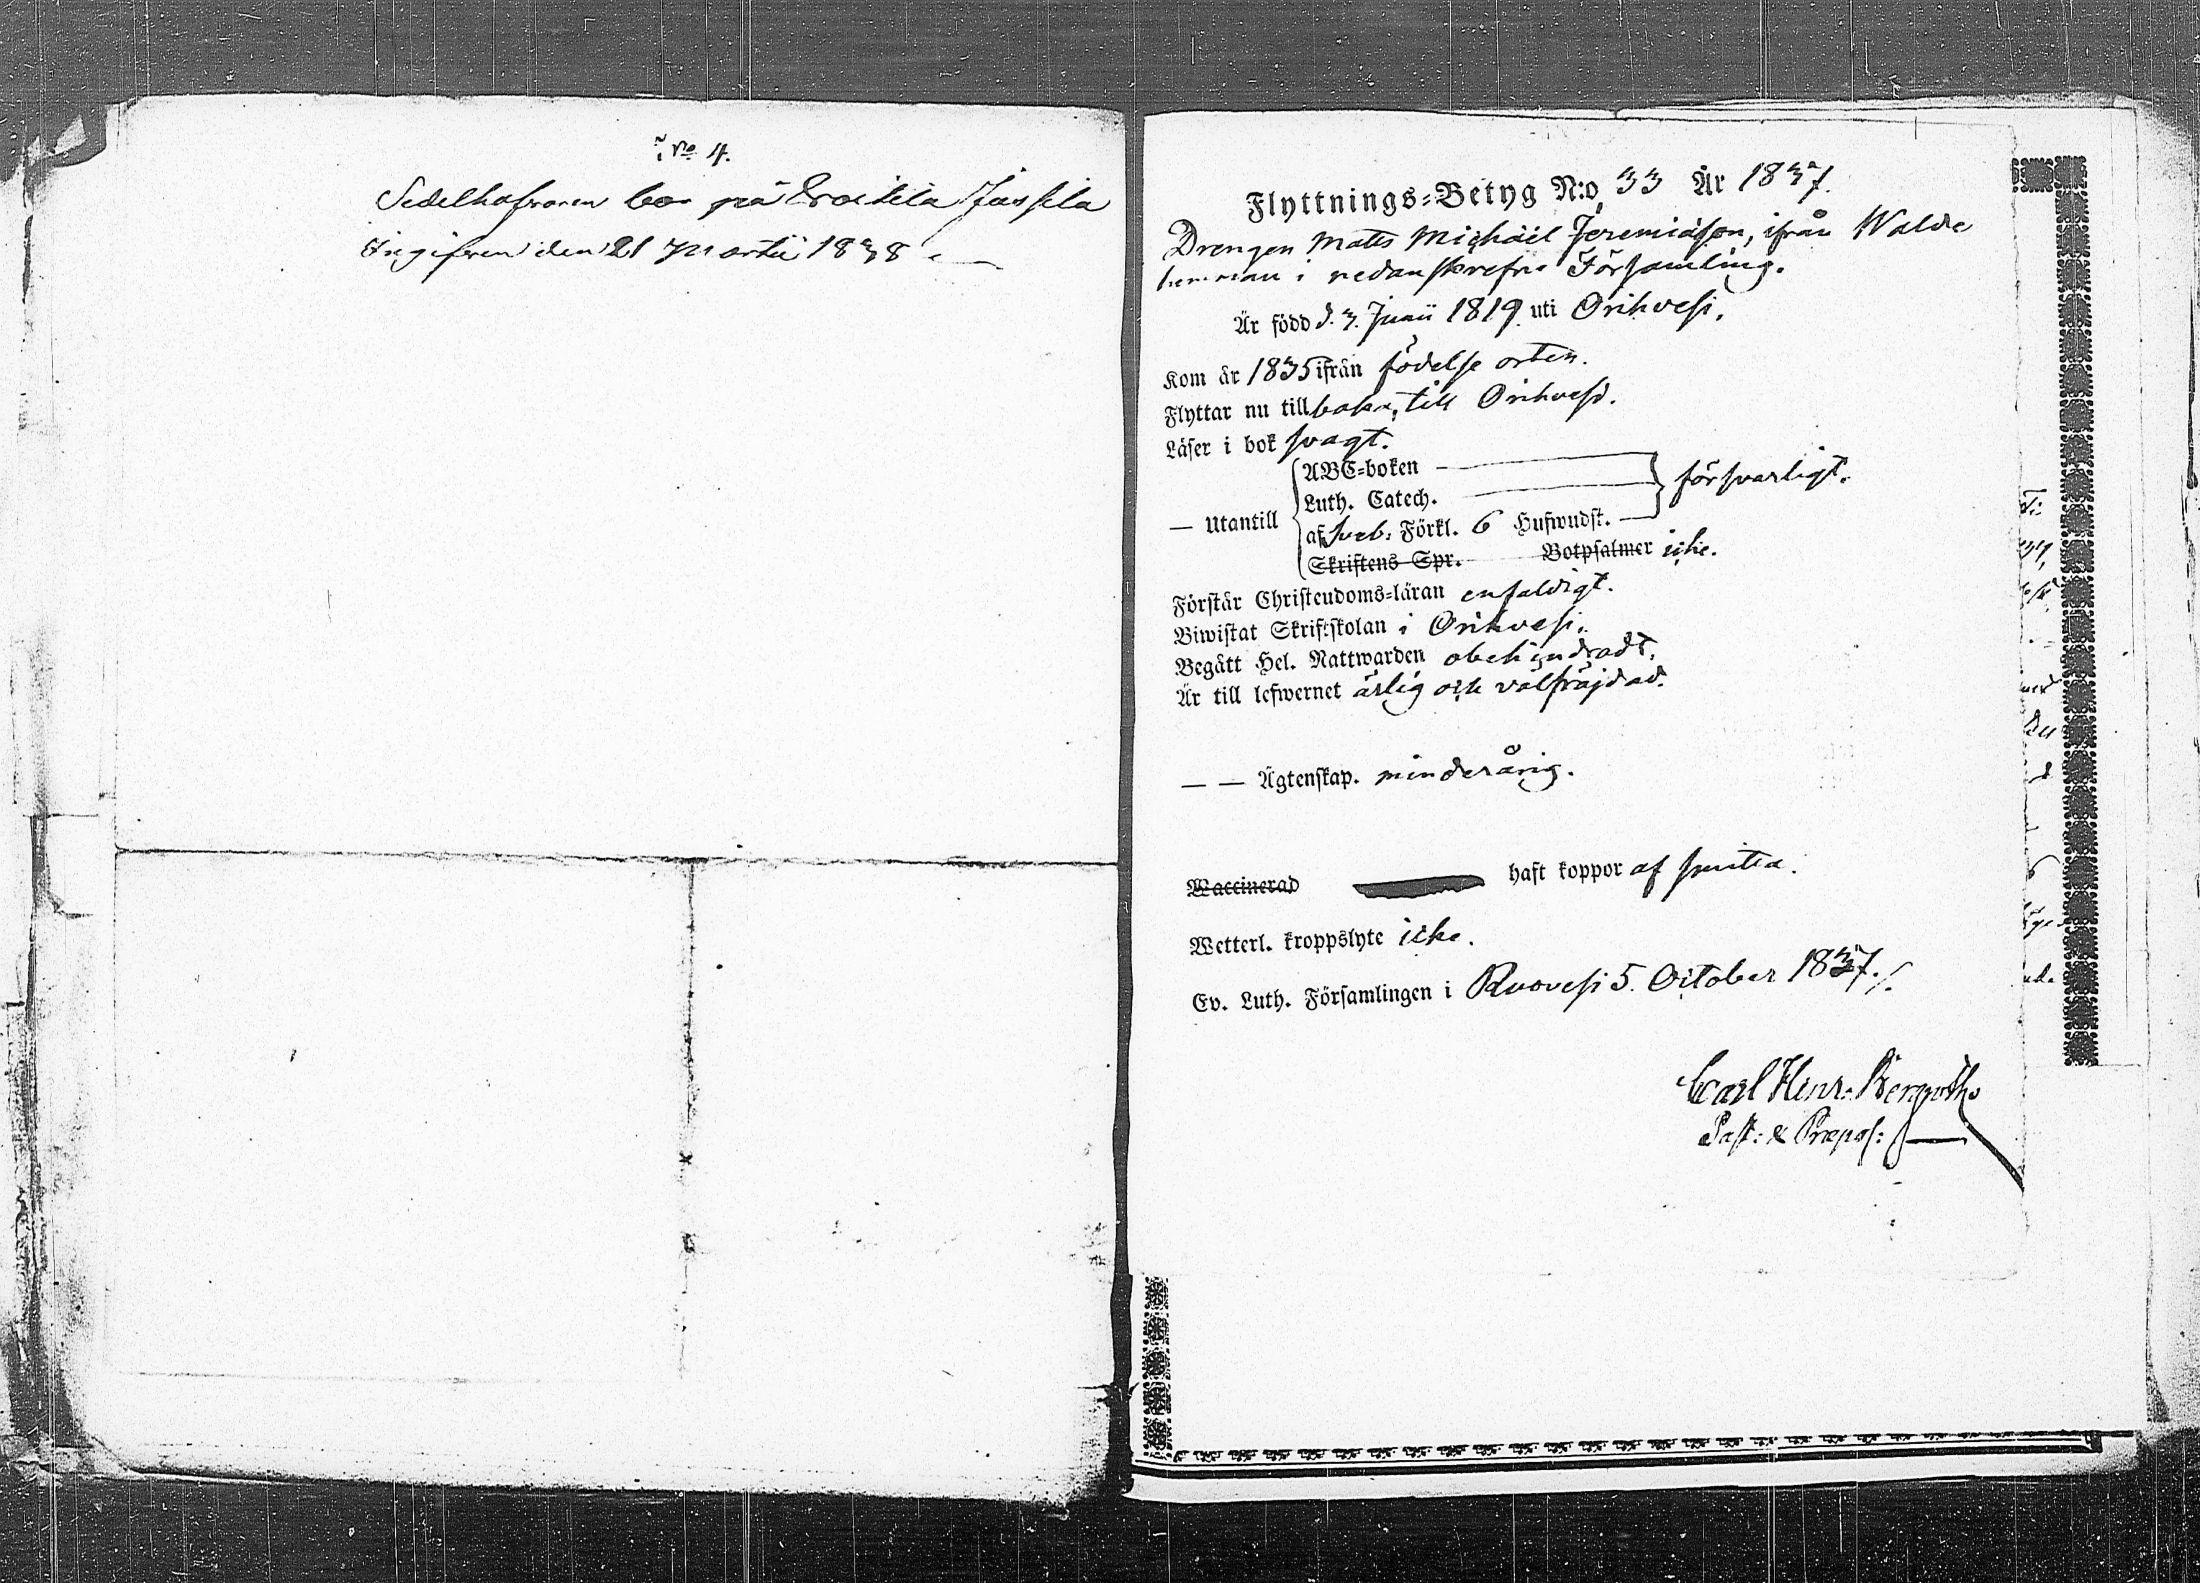 No 4.
Sedelhafvaren bor på Eräkkilä Jussila
Ingifven den 21 Martii 1838.
Flyttnings=Betyg N:o 33 År 1837.
Drengen Matts Michaël Jeremiasson, ifrån Walde
hemman i nedanskrefne Församling.
Är född d. 3. Junii 1819. uti Orihvesi.
Kom år 1835 ifrån födelse orten.
Flyttar nu tillbaka, till Orihvesi.
Läser i bok svagt.
ABC=boken
Luth. Catech.
försvarligt.
— Utantill
af Sveb. Förkl. 6 Hufwudst.
Skriftens Spr. Botpsalmer icke.
Förstår Christendoms=läran enfaldigt.
Biwistat Skriftskolan i Orihvesi.
Begått Hel. Nattwarden obehindradt.
Är till lefwernet ärlig och välfräjdad.
— — Ägtenskap. minderårig.
Waccinerad haft koppor af smitta.
Wetterl. kroppslyte icke.
Ev. Luth. Församlingen i Ruovesi 5. October 1837.
Carl Henr. Bergroth
Past: & Præpos: